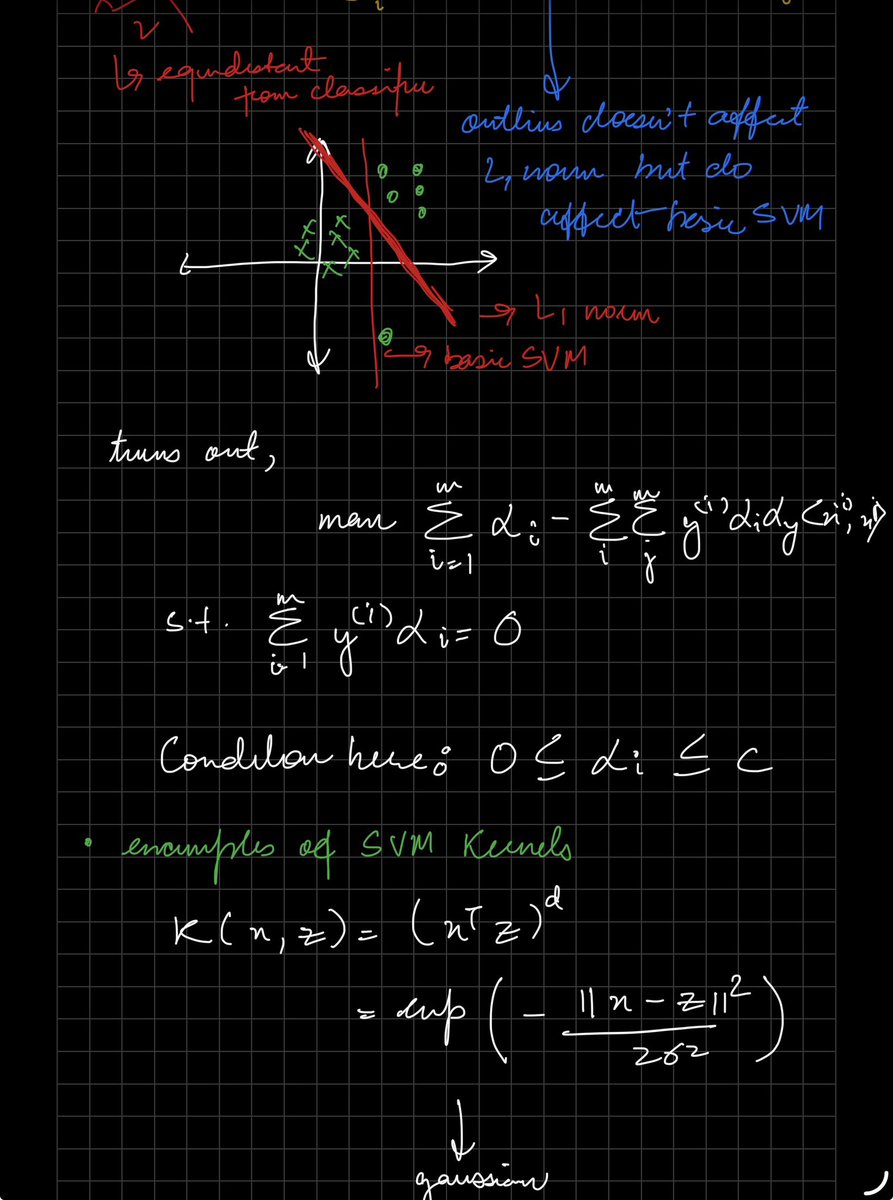 2
↳ equidistant
from classifier
outliers doesn't affect
L₁ norm but do
affect basic SVM
→ L₁ norm
→ basic SVM
turns out,
max Σ_{i=1}^{m} α_i - Σ_{i}^{m} Σ_{j}^{m} y^{(i)} α_i α_y <x^{i}, x^{j}>
s.t. Σ_{i=1}^{m} y^{(i)} α_i = 0
Condition here: 0 ≤ α_i ≤ C
• examples of SVM Kernels
K(x, z) = (x^T z)^d
= exp ( - ||x - z||² / 2σ² )
gaussian